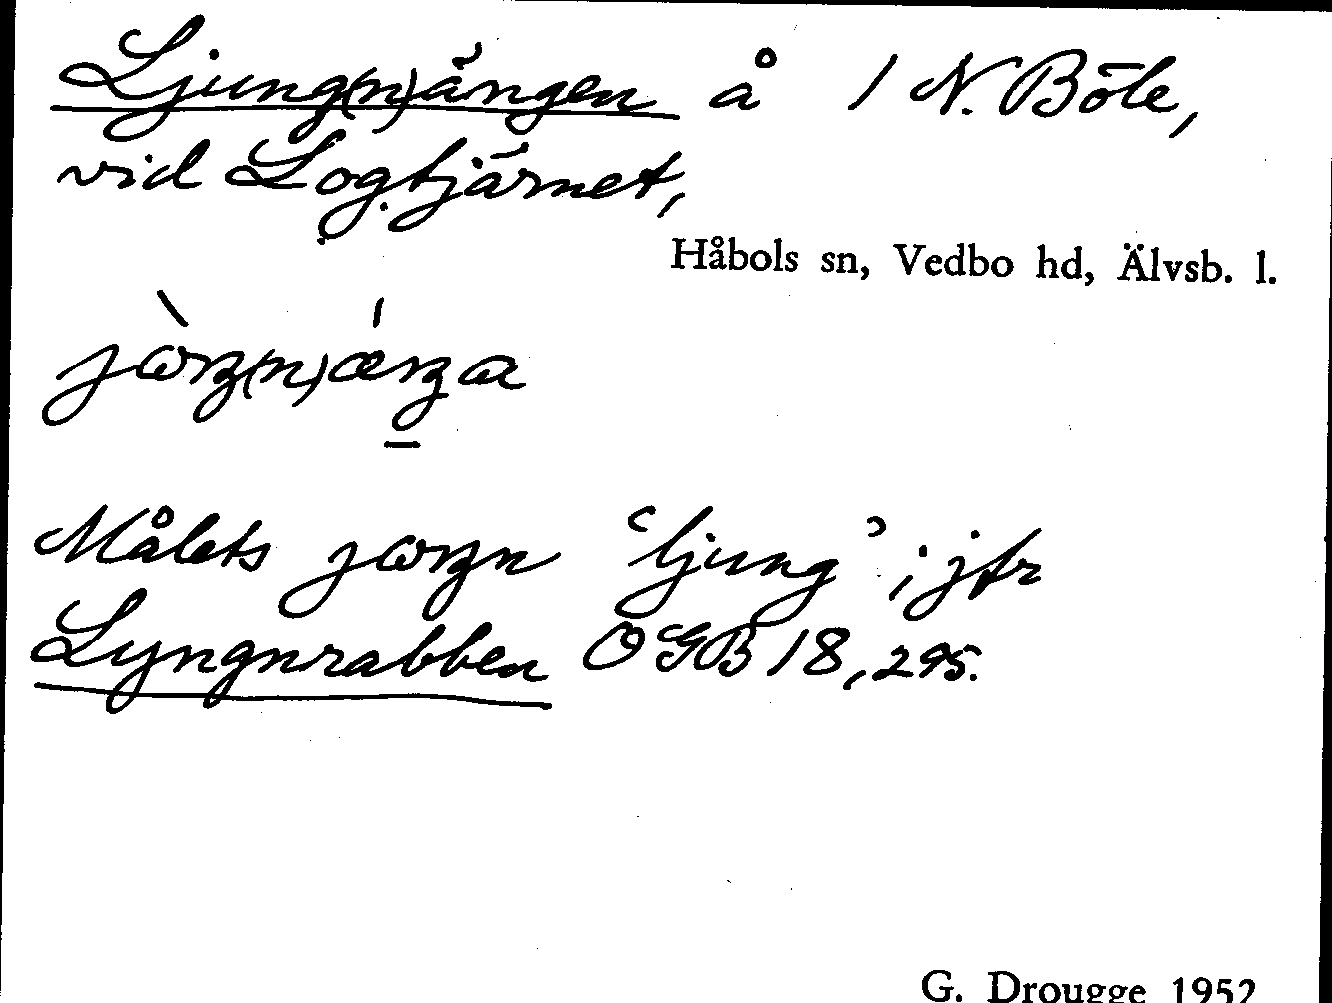 Ljung(n)ängen å 1 N. Böle,
vid Logtjärnet,
Håbols sn, Vedbo hd, Älvsb. l.
Målets jωŋn 'ljung'; jfr
Lyngnrabben OGB 18, 295.
G. Drougge 1952